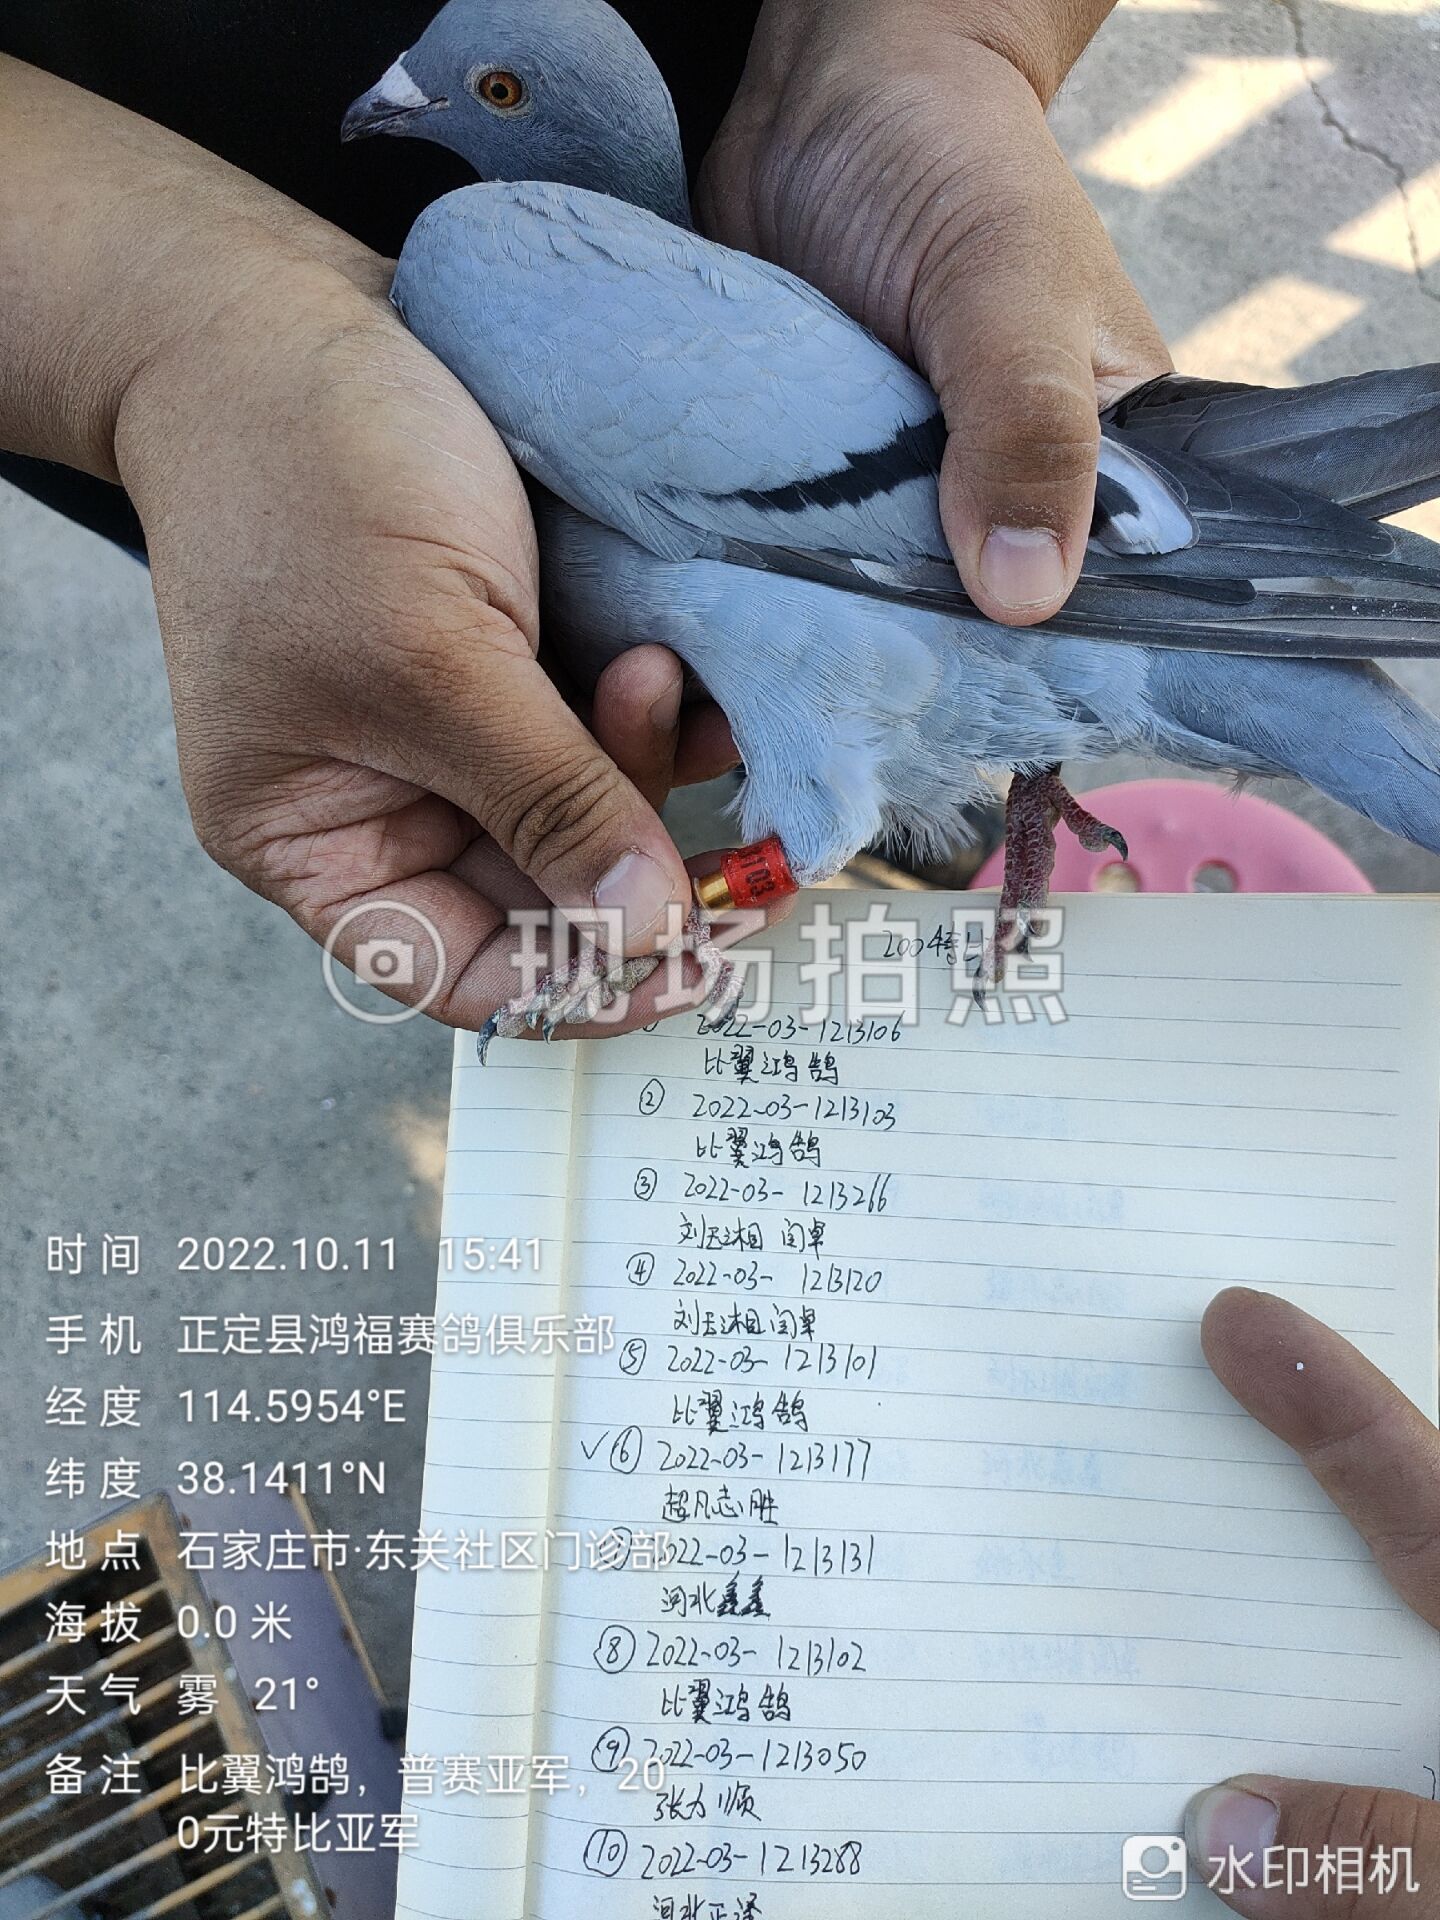 103
现场拍照
200特比
2022-03-1213106
比翼鸿鹄
② 2022-03-1213103
比翼鸿鹄
③ 2022-03- 1213266
刘玉湘 闫卓
④ 2022-03- 1213120
刘玉湘 闫卓
⑤ 2022-03- 1213101
比翼鸿鹄
✓ ⑥ 2022-03- 1213177
超凡志胜
2022-03-1213131
河北鑫鑫
⑧ 2022-03- 1213102
比翼鸿鹄
⑨ 2022-03-1213050
张力顺
⑩ 2022-03-1213288
河北正泽
时间 2022.10.11 15:41
手机 正定县鸿福赛鸽俱乐部
经度 114.5954°E
纬度 38.1411°N
地点 石家庄市·东关社区门诊部
海拔 0.0 米
天气 雾 21°
备注 比翼鸿鹄，普赛亚军，20
0元特比亚军
水印相机